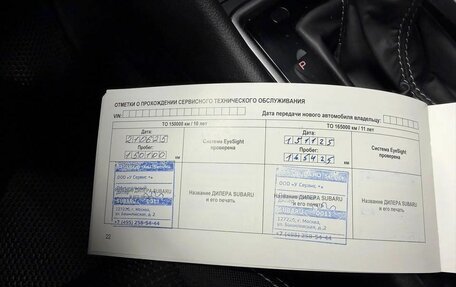 P
ОТМЕТКИ О ПРОХОЖДЕНИИ СЕРВИСНОГО ТЕХНИЧЕСКОГО ОБСЛУЖИВАНИЯ
VIN: Дата передачи нового автомобиля владельцу:
ТО 150000 км / 10 лет
Дата:
210625
Пробег:
150100 км
Система EyeSight проверена
ООО «У Сервис +»
SUBARU 0011
127276, г. Москва,
ул. Ботаническая, д. 2
+7 (495) 258-54-44
Название ДИЛЕРА SUBARU
и его печать
ТО 165000 км / 11 лет
Дата:
151125
Пробег:
165425 км
Система EyeSight
проверена
ООО «У Сервис +»
SUBARU 0011
г. Москва,
ул. Ботаническая, д. 2
+7 (495) 258-54-44
Название ДИЛЕРА SUBARU
и его печать
22